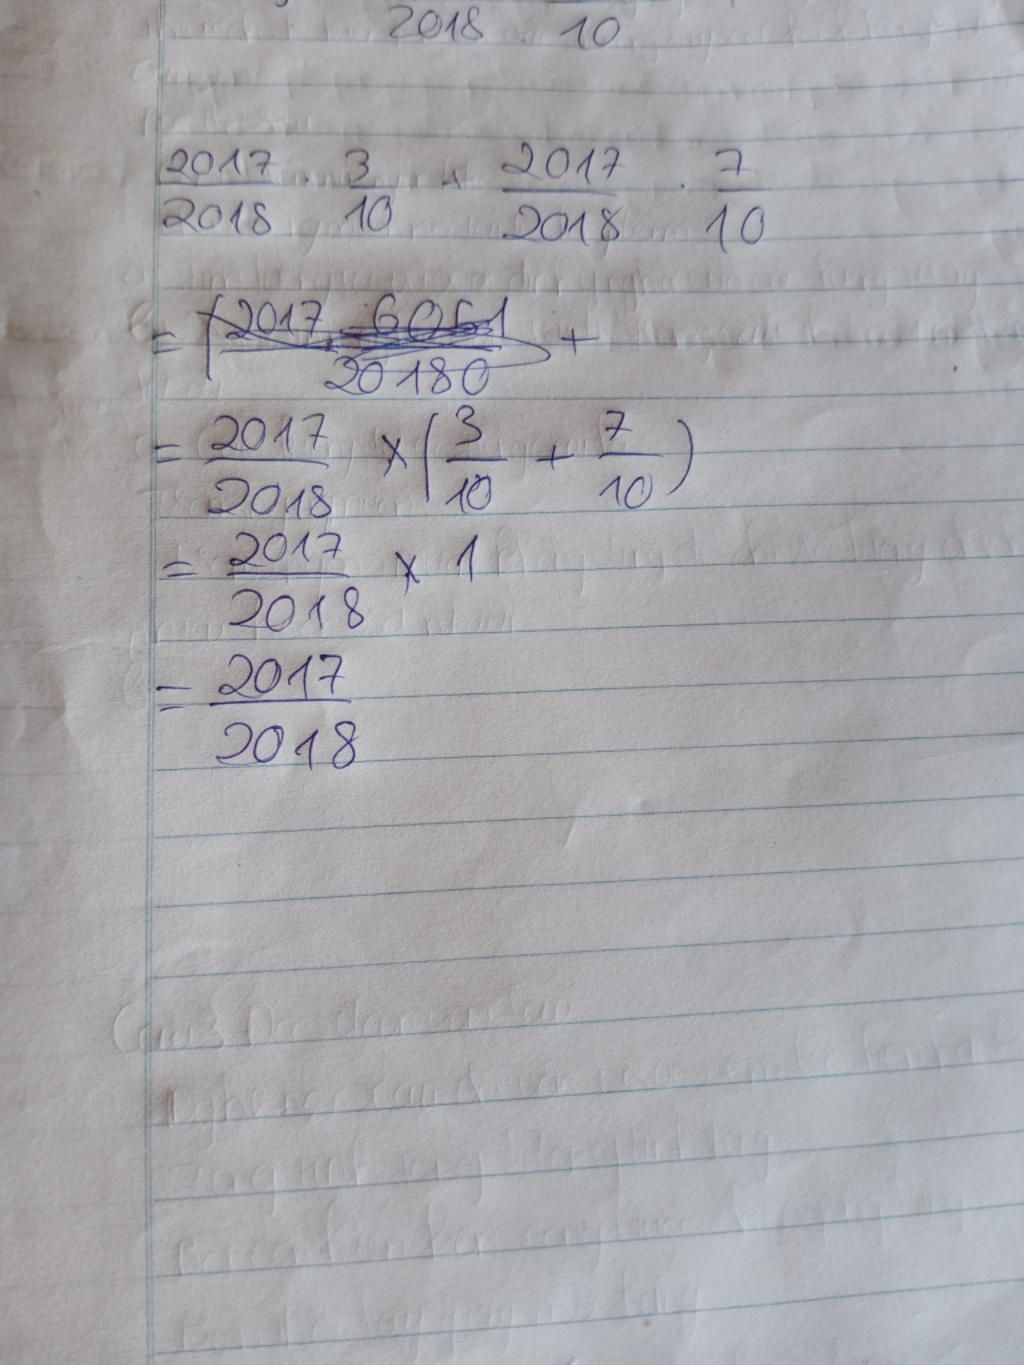 2018 10
2017/2018 · 3/10 + 2017/2018 · 7/10
= +
20180
= 2017/2018 × (3/10 + 7/10)
= 2017/2018 × 1
= 2017/2018